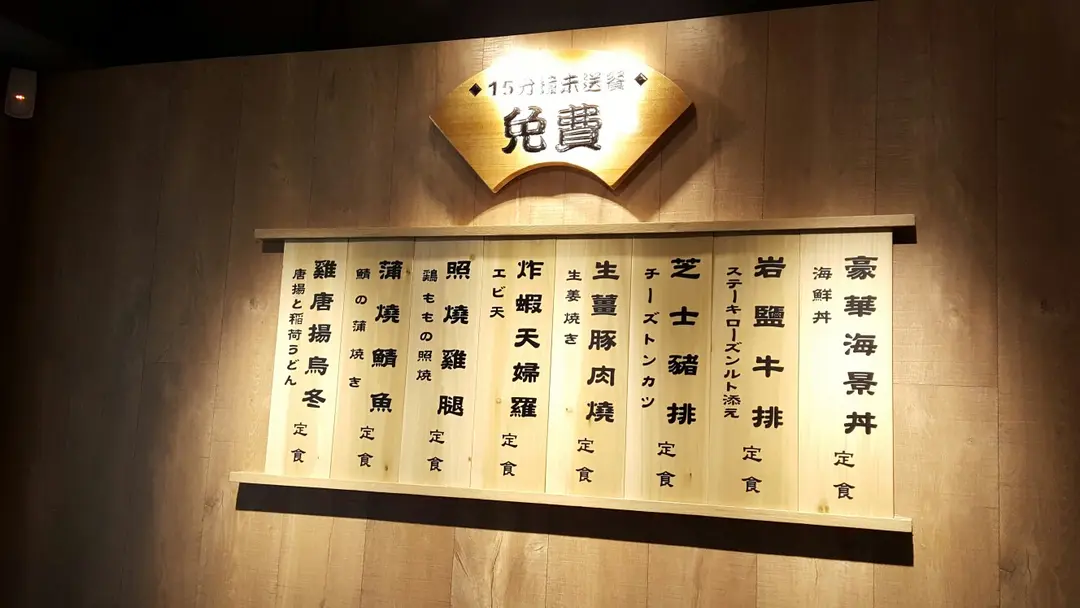 15分鐘未送餐
免費
豪華海景丼定食
海鮮丼
岩鹽牛排定食
ステーキローズンルト添え
芝士豬排定食
チーズトンカツ
生薑豚肉燒定食
生姜焼き
炸蝦天婦羅定食
エビ天
照燒雞腿定食
鶏ももの照焼
蒲燒鯖魚定食
鯖の蒲焼き
雞唐揚烏冬定食
唐揚と稲荷うどん